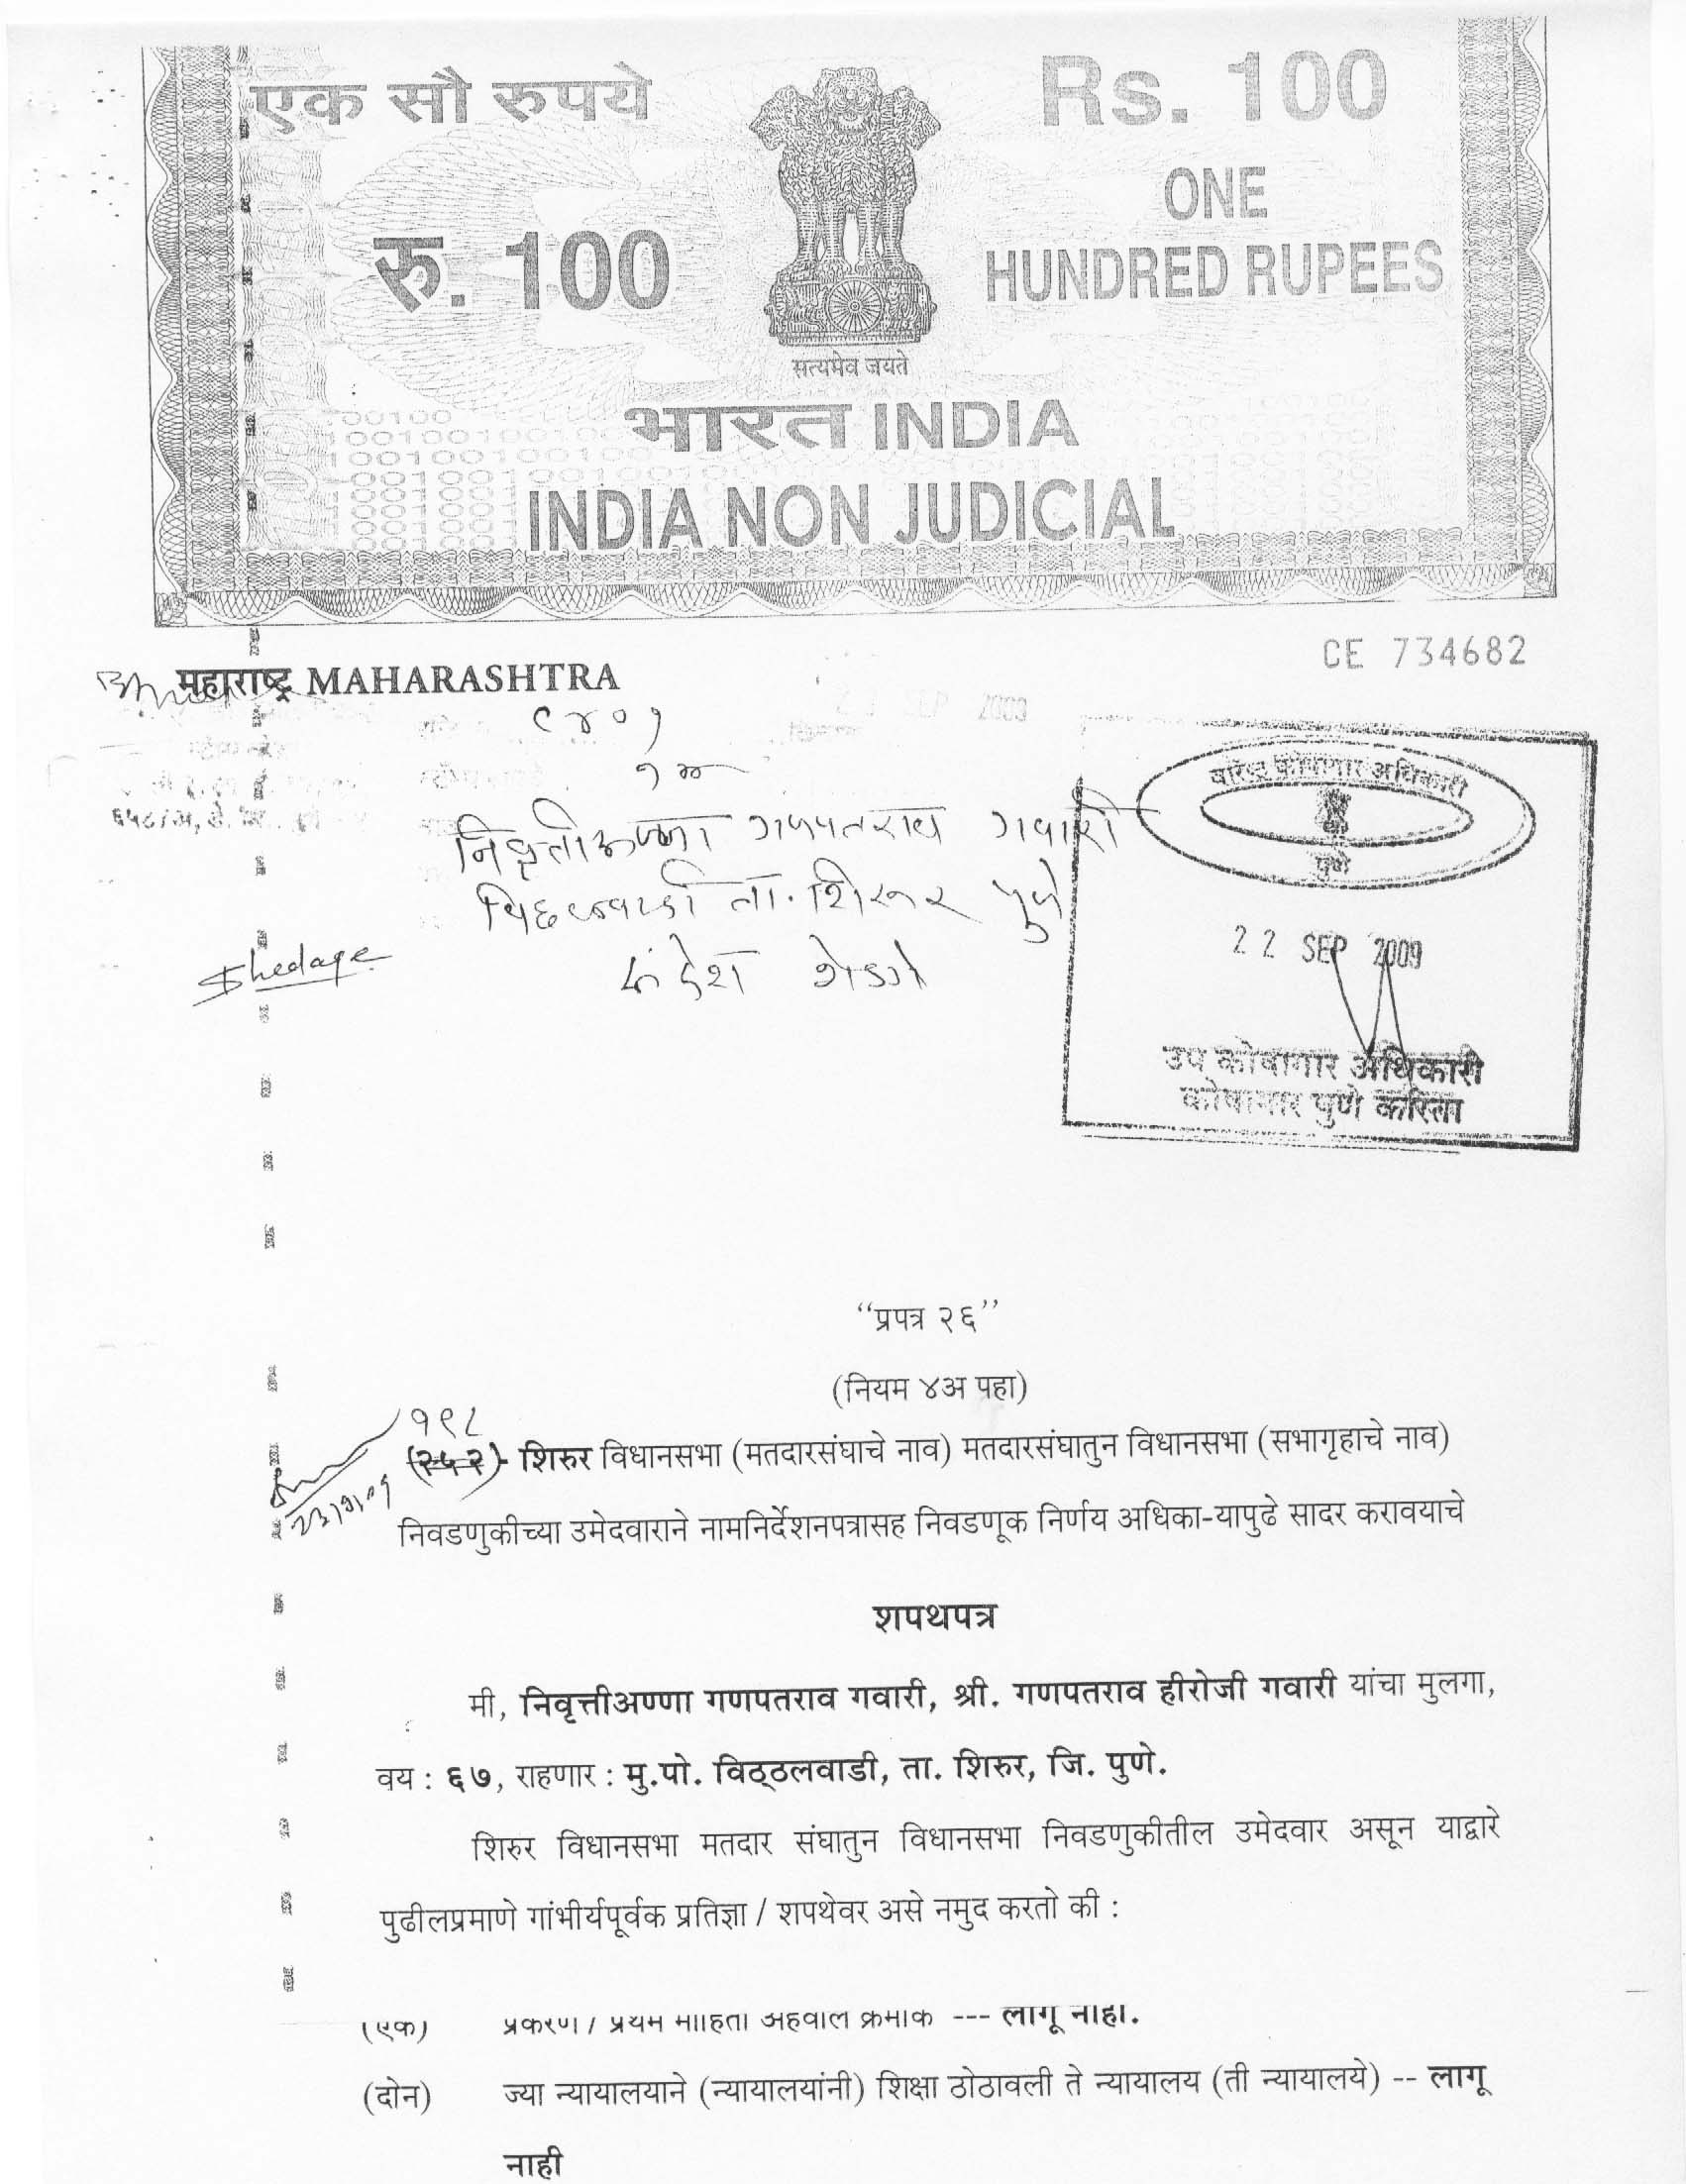 एक सौ रुपये
Rs. 100
रु. 100
ONE
HUNDRED RUPEES
सत्यमेव जयते
भारत INDIA
INDIA NON JUDICIAL
CE 734682
महाराष्ट्र MAHARASHTRA
SEP
९४०१
निवृत्तीअण्णा गणपतराव गवारी
ता. शिरूर पुणे
Shedage
वरिष्ठ कोषागार अधिकारी
पुणे
22 SEP 2009
उप कोषागार अधिकारी
कोषागार पुणे करिता
“प्रपत्र २६”
(नियम ४अ पहा)
१९८
(२५२)- शिरुर विधानसभा (मतदारसंघाचे नाव) मतदारसंघातुन विधानसभा (सभागृहाचे नाव)
निवडणुकीच्या उमेदवाराने नामनिर्देशनपत्रासह निवडणूक निर्णय अधिका-यापुढे सादर करावयाचे
शपथपत्र
मी, निवृत्तीअण्णा गणपतराव गवारी, श्री. गणपतराव हीरोजी गवारी यांचा मुलगा,
वय : ६७, राहणार : मु.पो. विठ्ठलवाडी, ता. शिरुर, जि. पुणे.
शिरुर विधानसभा मतदार संघातुन विधानसभा निवडणुकीतील उमेदवार असून याद्वारे
पुढीलप्रमाणे गांभीर्यपूर्वक प्रतिज्ञा / शपथेवर असे नमुद करतो की :
(एक) प्रकरण / प्रथम माहिती अहवाल क्रमांक --- लागू नाही.
(दोन) ज्या न्यायालयाने (न्यायालयांनी) शिक्षा ठोठावली ते न्यायालय (ती न्यायालये) -- लागू
नाही